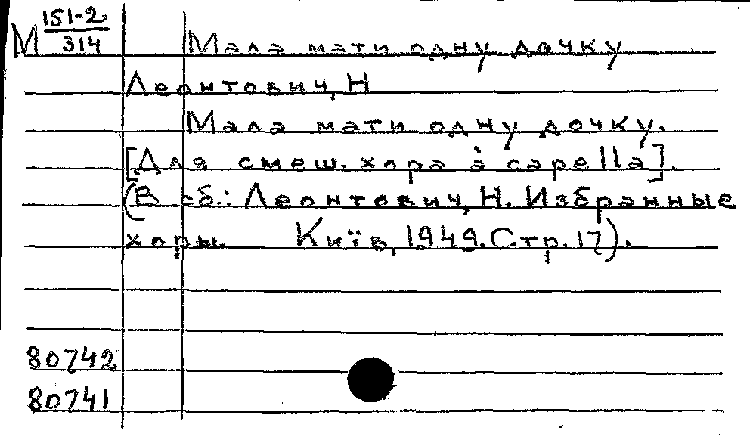 М 151-2/314 Мала мати одну дочку
Леонтович, Н
Мала мати одну дочку.
[Для смеш. хора à capella].
(В сб.: Леонтович, Н. Избранные
хоры. Київ, 1949. Стр. 17).
80742
80741